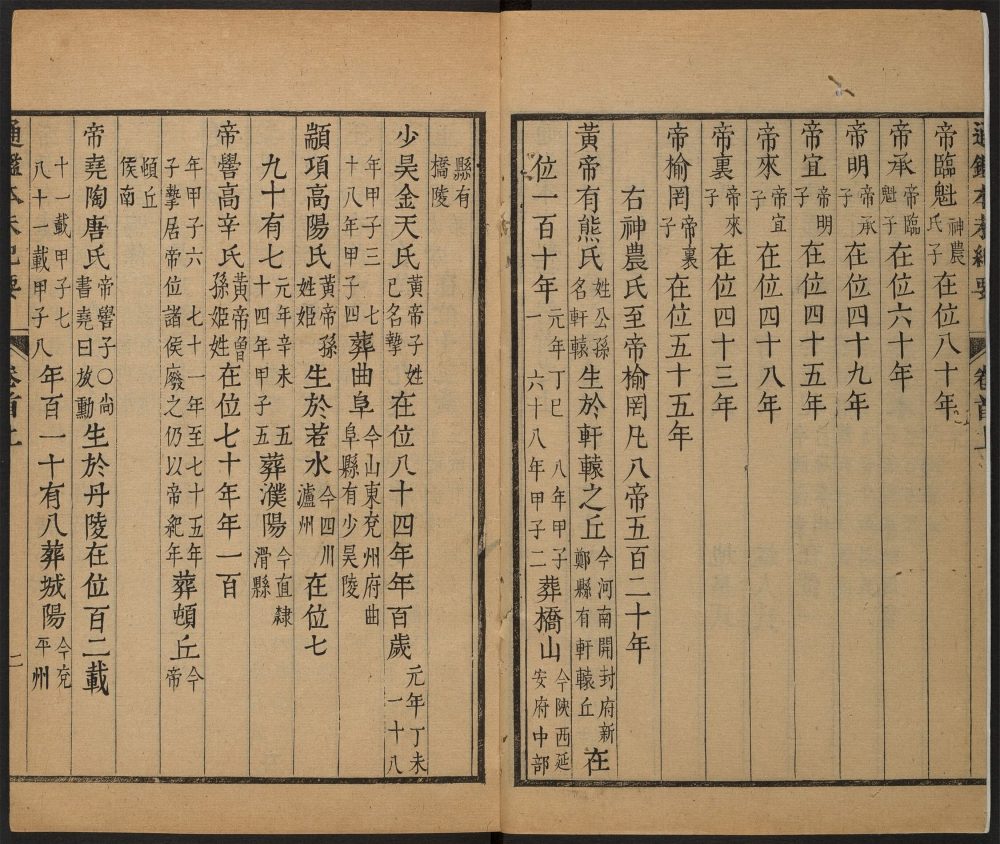 帝臨魁神農氏子在位八十年
帝承帝臨魁子在位六十年
帝明帝承子在位四十九年
帝宜帝明子在位四十五年
帝來帝宜子在位四十八年
帝裏帝來子在位四十三年
帝榆罔帝裏子在位五十五年
右神農氏至帝榆罔凡八帝五百二十年
黃帝有熊氏姓公孫名軒轅生於軒轅之丘今河南開封府新鄭縣有軒轅丘在
位一百十年元年丁巳八年甲子一六十八年甲子二葬橋山今陝西延安府中部
縣有橋陵
少昊金天氏黃帝子姓己名摯在位八十四年年百歲元年丁未一十八
年甲子三七十八年甲子四葬曲阜今山東兗州府曲阜縣有少昊陵
顓頊高陽氏黃帝孫姓姬生於若水今四川瀘州在位七
九十有七元年辛未五十四年甲子五葬濮陽今直隸滑縣
帝嚳高辛氏黃帝曾孫姬姓在位七十年年一百
年甲子六七十一年至七十五年子摯居帝位諸侯廢之仍以帝紀年葬頓丘今帝
頓丘侯南
帝堯陶唐氏帝嚳子○尚書堯曰放勳生於丹陵在位百二載
十一載甲子七八十一載甲子八年百一十有八葬城陽今兗州平
通鑑本末紀要
卷首上
二